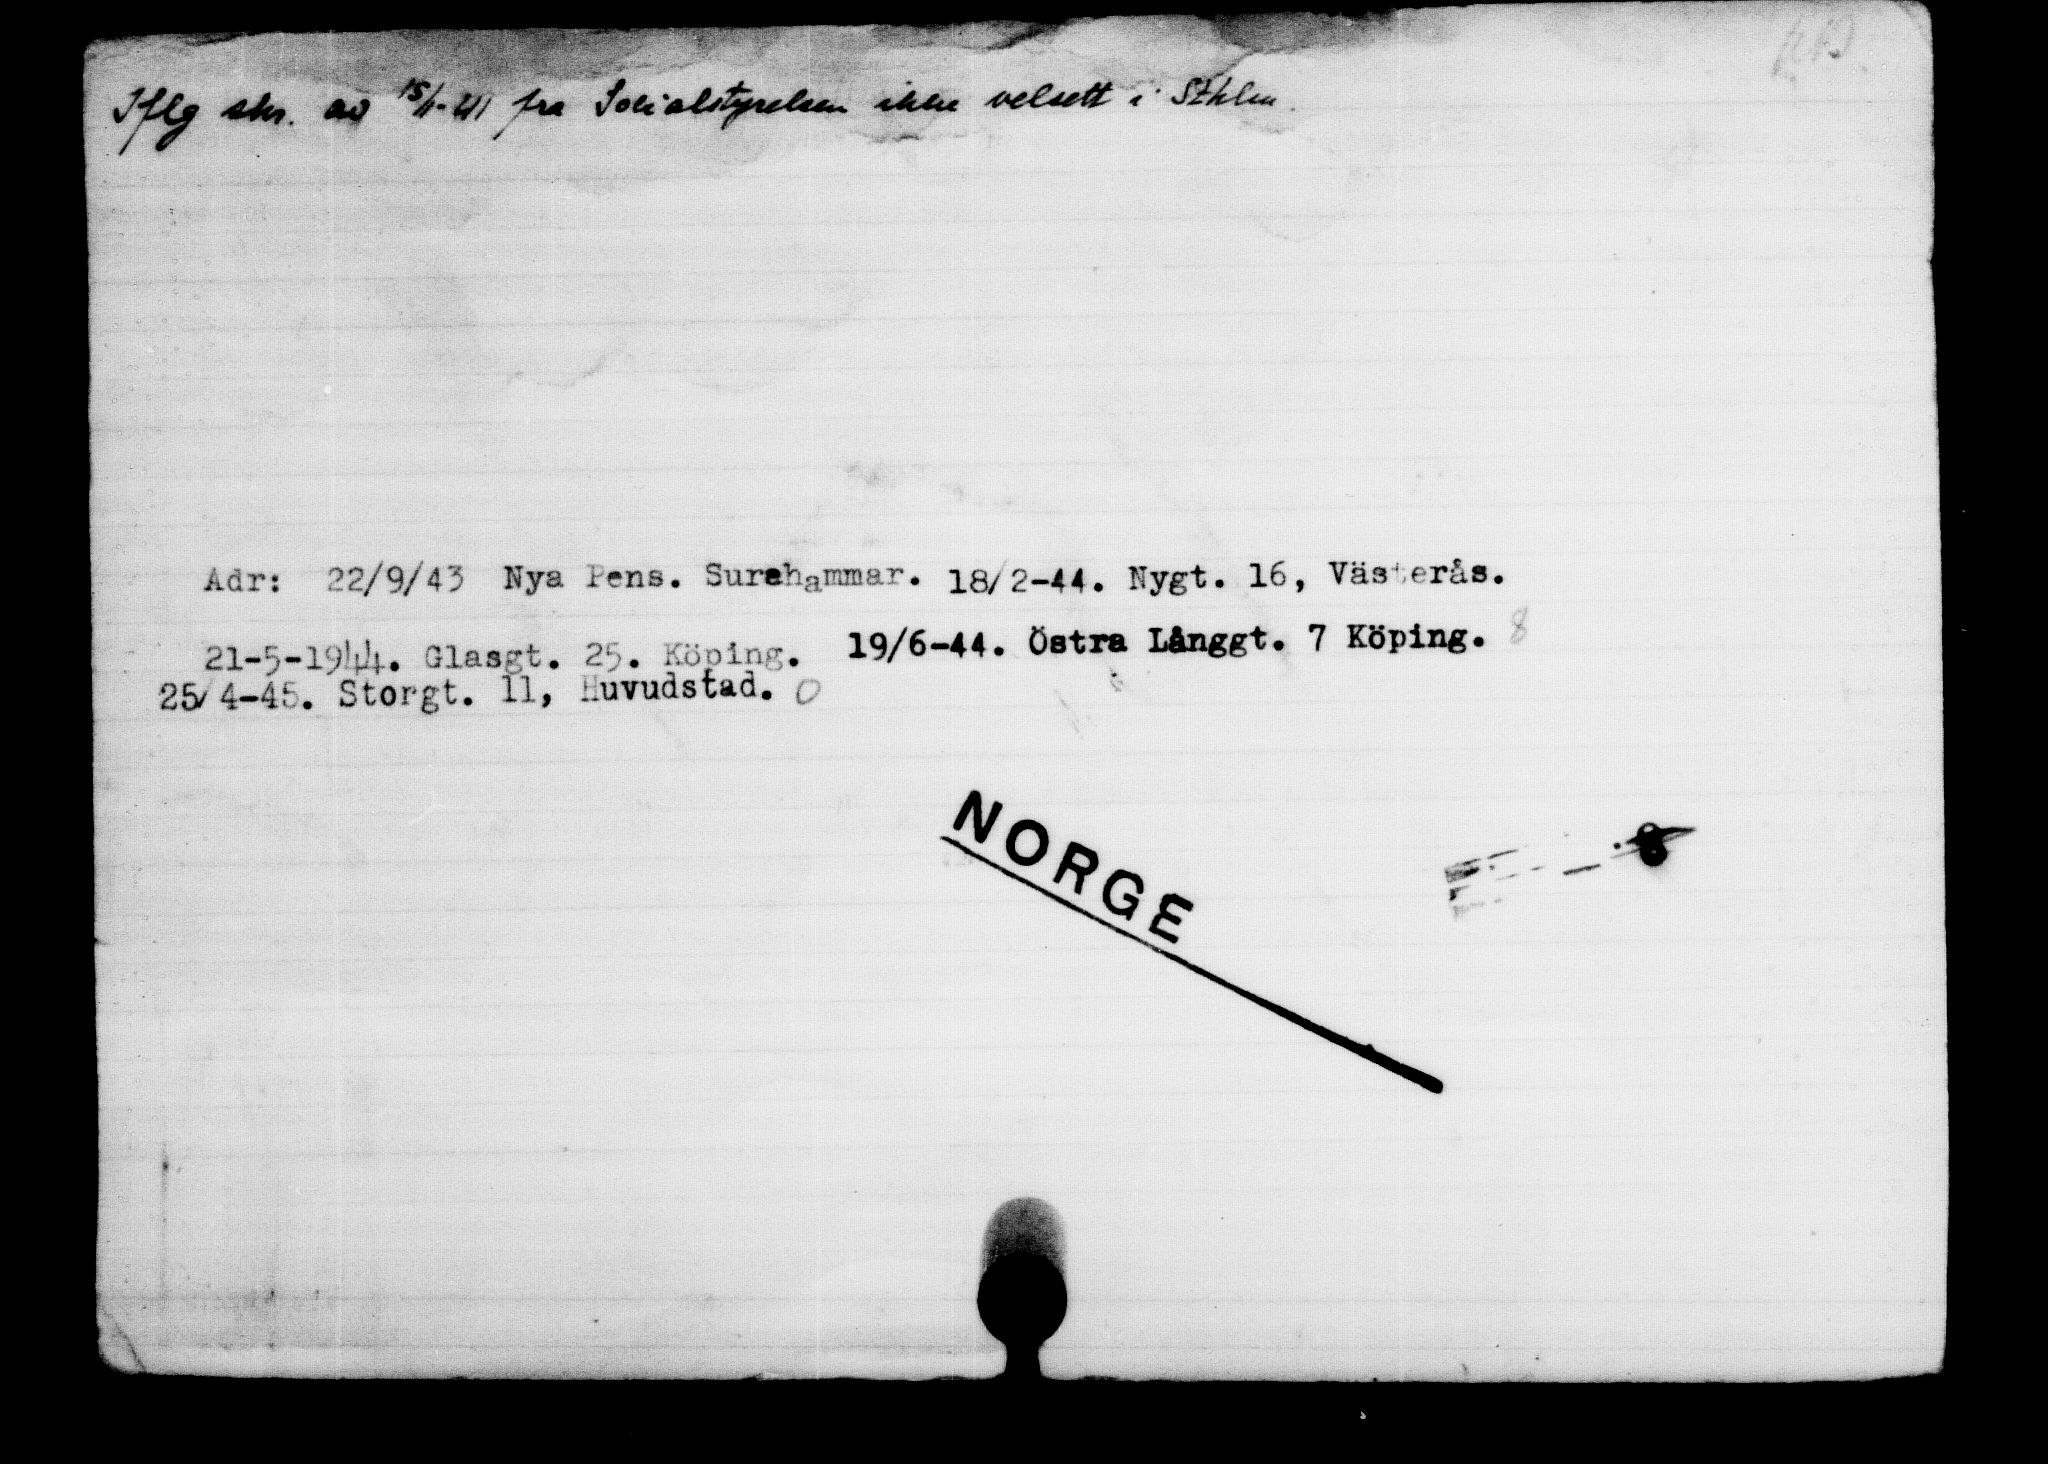 Iflg skr. av 15/1-41 fra Socialstyrelsen ikke velsett i Sthlm.
Adr: 22/9/43 Nya Pens. Surahammar. 18/2-44. Nygt. 16, Västerås.
21-5-1944. Glasgt. 25. Köping. 19/6-44. Östra Långgt. 7 Köping. 8
25/4-45. Storgt. 11, Huvudstad. O
NORGE